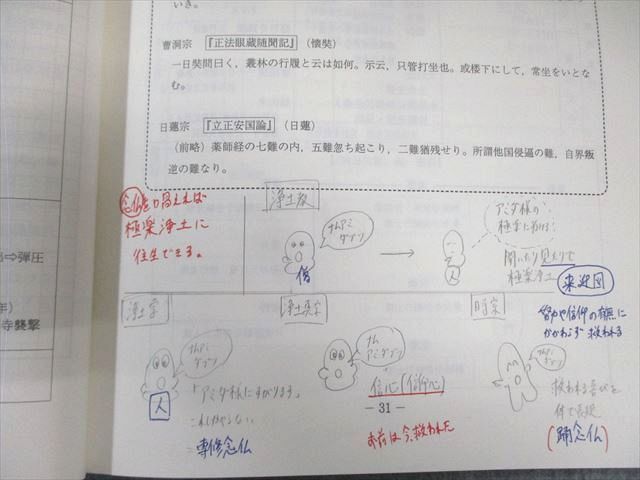 いき。
曹洞宗 『正法眼蔵随聞記』(懐奘)
一日奘問曰く，叢林の行履と云は如何。示云，只管打坐也。或楼下にして，常坐をいとな
む。
日蓮宗 『立正安国論』(日蓮)
(前略) 薬師経の七難の内，五難忽ち起こり，二難猶残せり。所謂他国侵逼の難，自界叛
逆の難なり。
⇒弾圧
寺襲撃
念仏を唱えれば
極楽浄土に
往生できる。
浄土教
ナムアミ
ダブツ
僧
アミダ様の
極楽に行ける!
人
聞いたり見たりで
極楽浄土
来迎図
浄土宗
ナムアミ
ダブツ
人
「アミダ様にすがります」
専修念仏
浄土真宗
ナム
アミダブツ
信心(信仰心)
- 31 -
お前は今、救われた
時宗
や信仰の有無に
かかわらず救われる
ナムアミ
ダブツ
救われる喜びを
体で表現
(踊念仏)